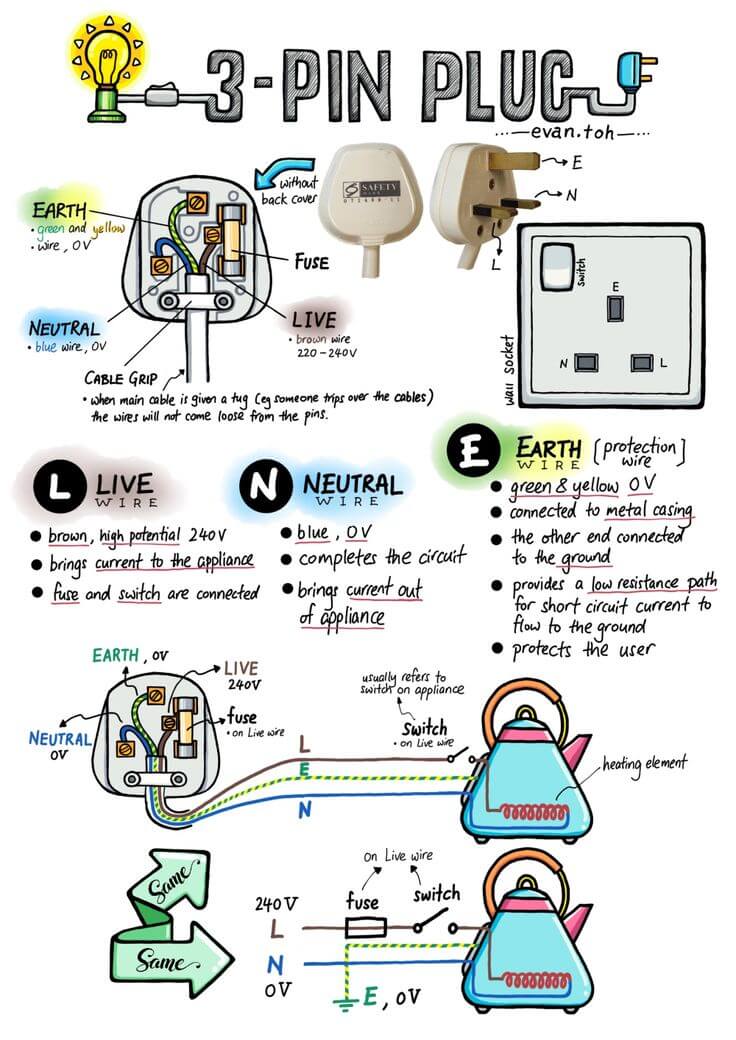 3-PIN PLUG
...—evan.toh—...
without
back cover
SAFETY
MARK
E
N
L
EARTH
• green and yellow
• wire, 0V
FUSE
NEUTRAL
• blue wire, 0V
LIVE
• brown wire
220-240V
CABLE GRIP
• when main cable is given a tug (eg someone trips over the cables)
the wires will not come loose from the pins.
switch
E
N
L
wall socket
L LIVE
WIRE
● brown, high potential 240V
● brings current to the appliance
● fuse and switch are connected
N NEUTRAL
WIRE
● blue, 0V
● completes the circuit
● brings current out
of appliance
E EARTH [protection
WIRE wire]
● green & yellow 0V
● connected to metal casing
● the other end connected
to the ground
● provides a low resistance path
for short circuit current to
flow to the ground
● protects the user
EARTH, 0V
LIVE
240V
fuse
• on Live wire
NEUTRAL
0V
L
E
N
usually refers to
switch on appliance
Switch
• on Live wire
heating element
Same
Same
on Live wire
240V
fuse
switch
L
N
0V
E, 0V